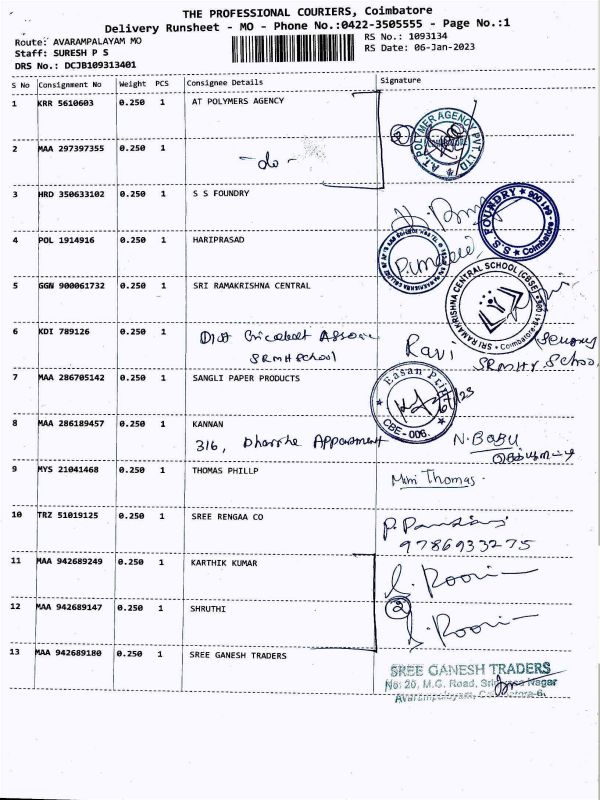 THE PROFESSIONAL COURIERS, Coimbatore
Delivery Runsheet - MO - Phone No.:0422-3505555 - Page No.:1
Route: AVARAMPALAYAM MO
Staff: SURESH P S
DRS No.: DCJB109313401
RS No.: 1093134
RS Date: 06-Jan-2023
S No Consignment No Weight PCS Consignee Details Signature
1 KRR 5610603 0.250 1 AT POLYMERS AGENCY
A.T. POLYMER AGENCY PVT. LTD
2
2 MAA 297397355 0.250 1
- do -
3 HRD 350633102 0.250 1 S S FOUNDRY
S.S. FOUNDRY Coimbatore - 641 006
4 POL 1914916 0.250 1 HARIPRASAD
5 GGN 900061732 0.250 1 SRI RAMAKRISHNA CENTRAL
SRI RAMAKRISHNA CENTRAL SCHOOL (CBSE)
6 KDI 789126 0.250 1 Dist Cricket Assoon
SRMH School
Ravi
SRMHY School
7 MAA 286705142 0.250 1 SANGLI PAPER PRODUCTS
Easan Print
CBE -006.
8 MAA 286189457 0.250 1 KANNAN
316,
N. BABU
9 MYS 21041468 0.250 1 THOMAS PHILLP
Mini Thomas
10 TRZ 51019125 0.250 1 SREE RENGAA CO
9786933275
11 MAA 942689249 0.250 1 KARTHIK KUMAR
12 MAA 942689147 0.250 1 SHRUTHI
2
13 MAA 942689180 0.250 1 SREE GANESH TRADERS
SREE GANESH TRADERS
No: 20, M.G. Road, Srinivasa Nagar
Avarampalayam, Coimbatore-6.